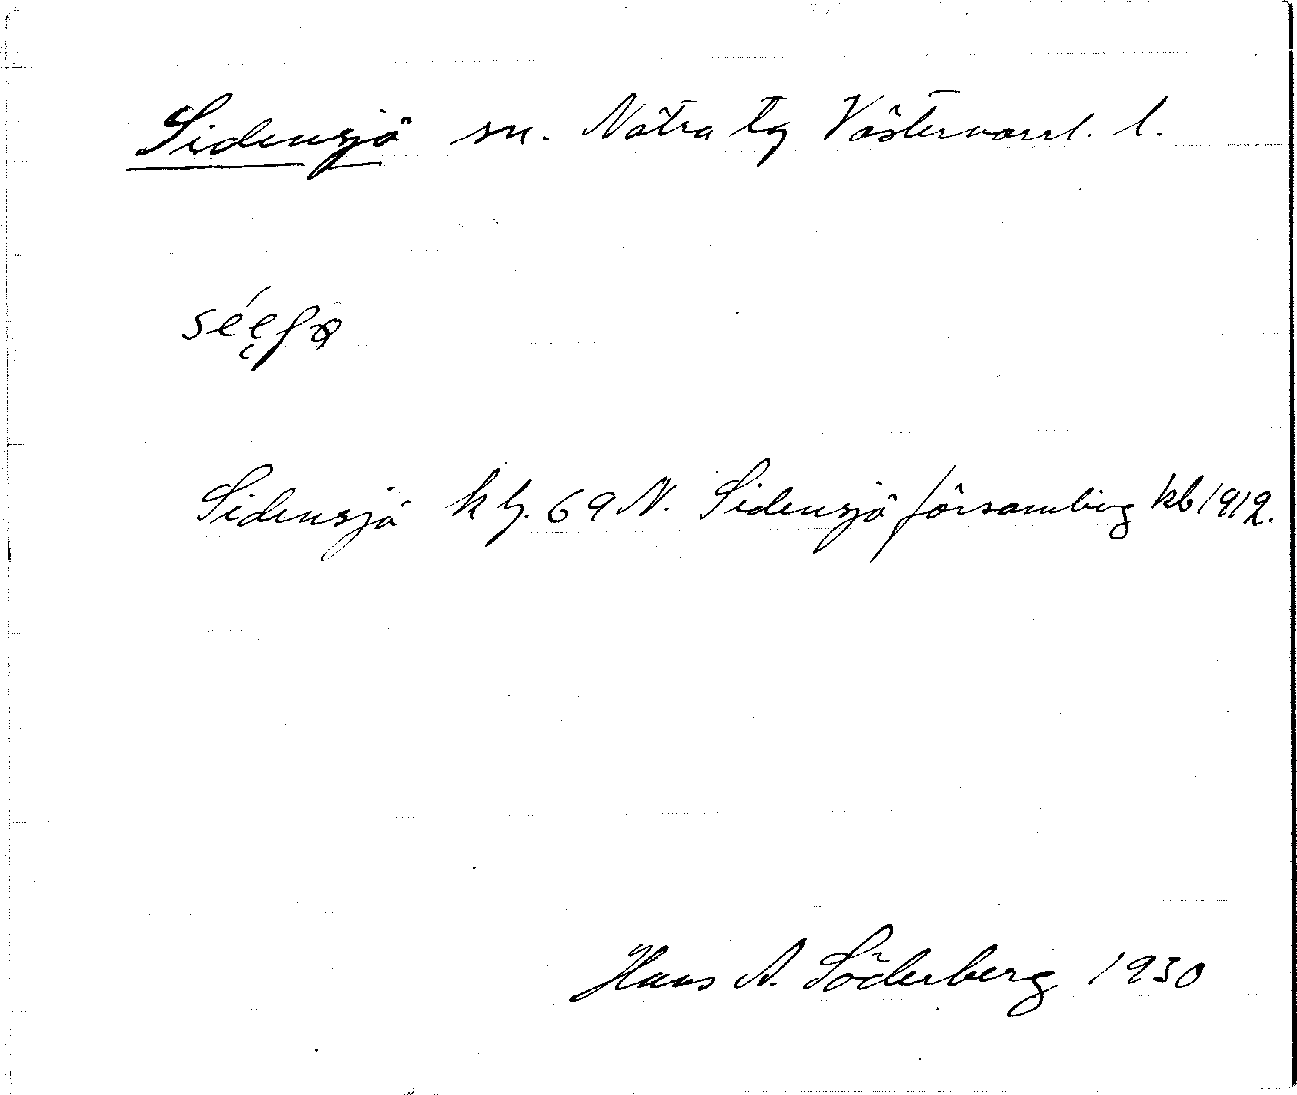 Sidensjö sn. Nätra tg Västernorrl. l.
Sidensjö kbl. 69 N. Sidensjö församling kb 1912.
Hans A. Söderberg 1930